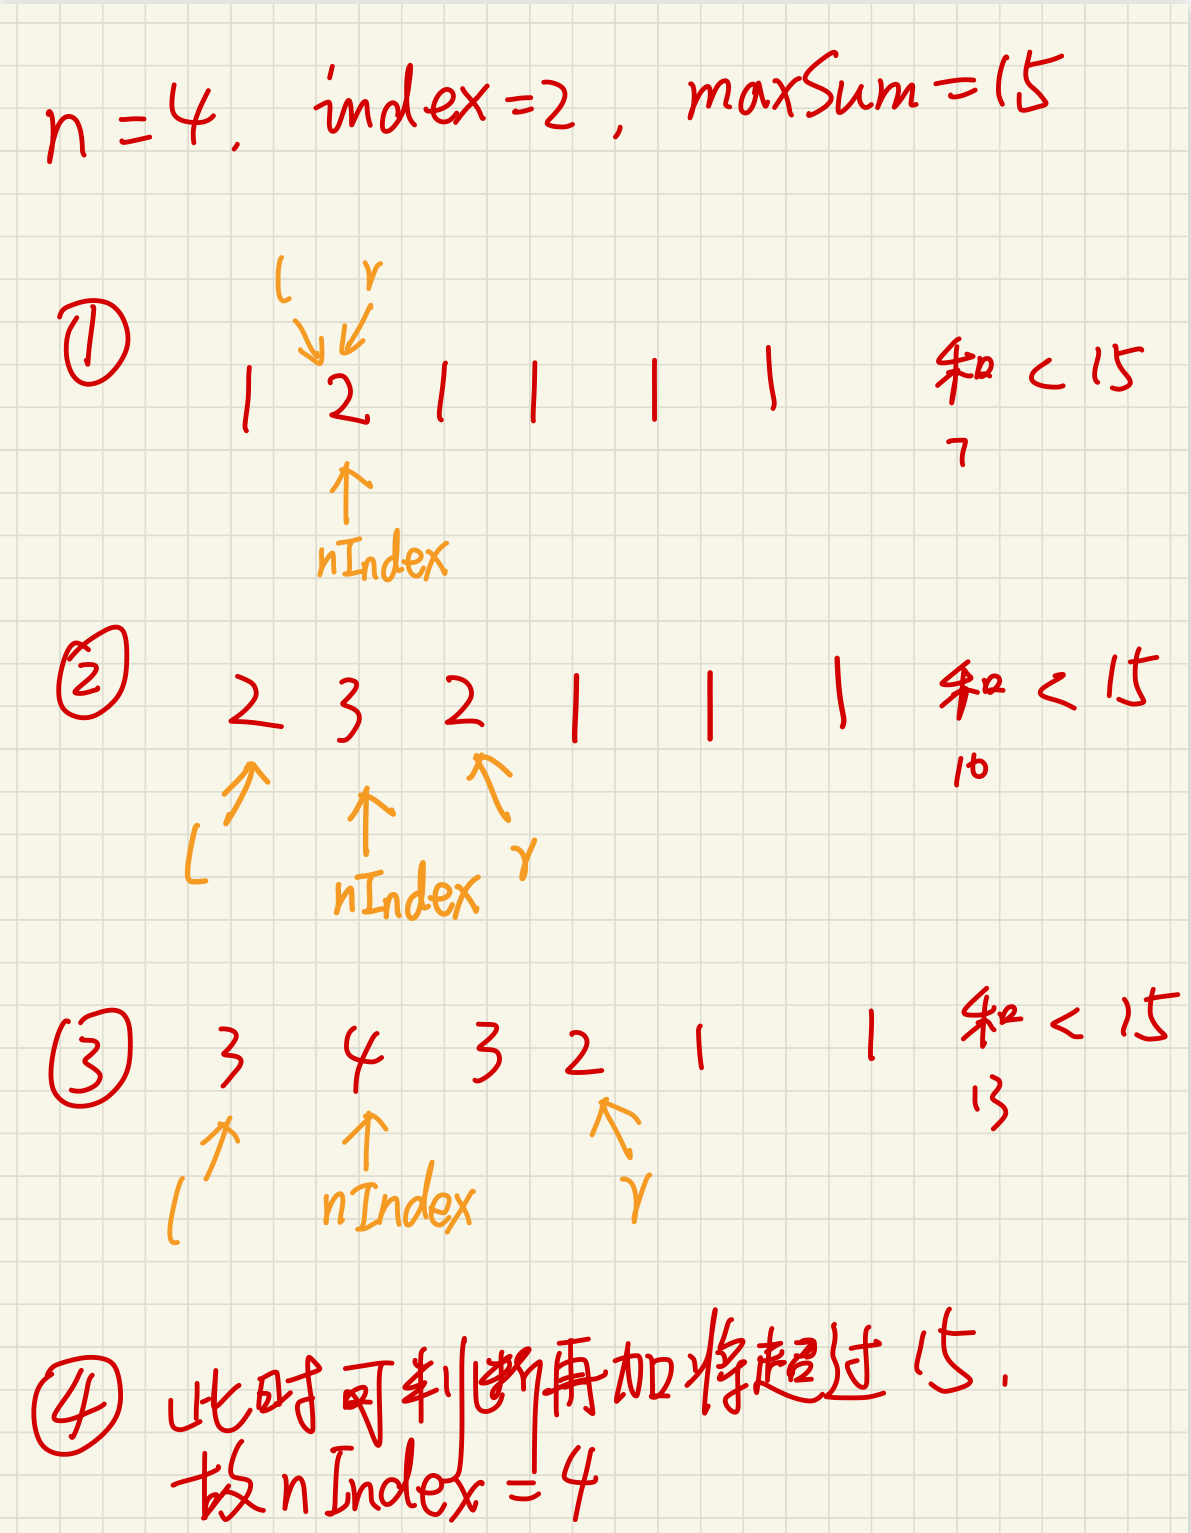 n=4. index=2, maxSum=15
l r
① 1 2 1 1 1 1 和 < 15
7
nIndex
② 2 3 2 1 1 1 和 < 15
10
l nIndex r
③ 3 4 3 2 1 1 和 < 15
13
l nIndex r
④ 此时可判断再加将超过15.
故nIndex=4